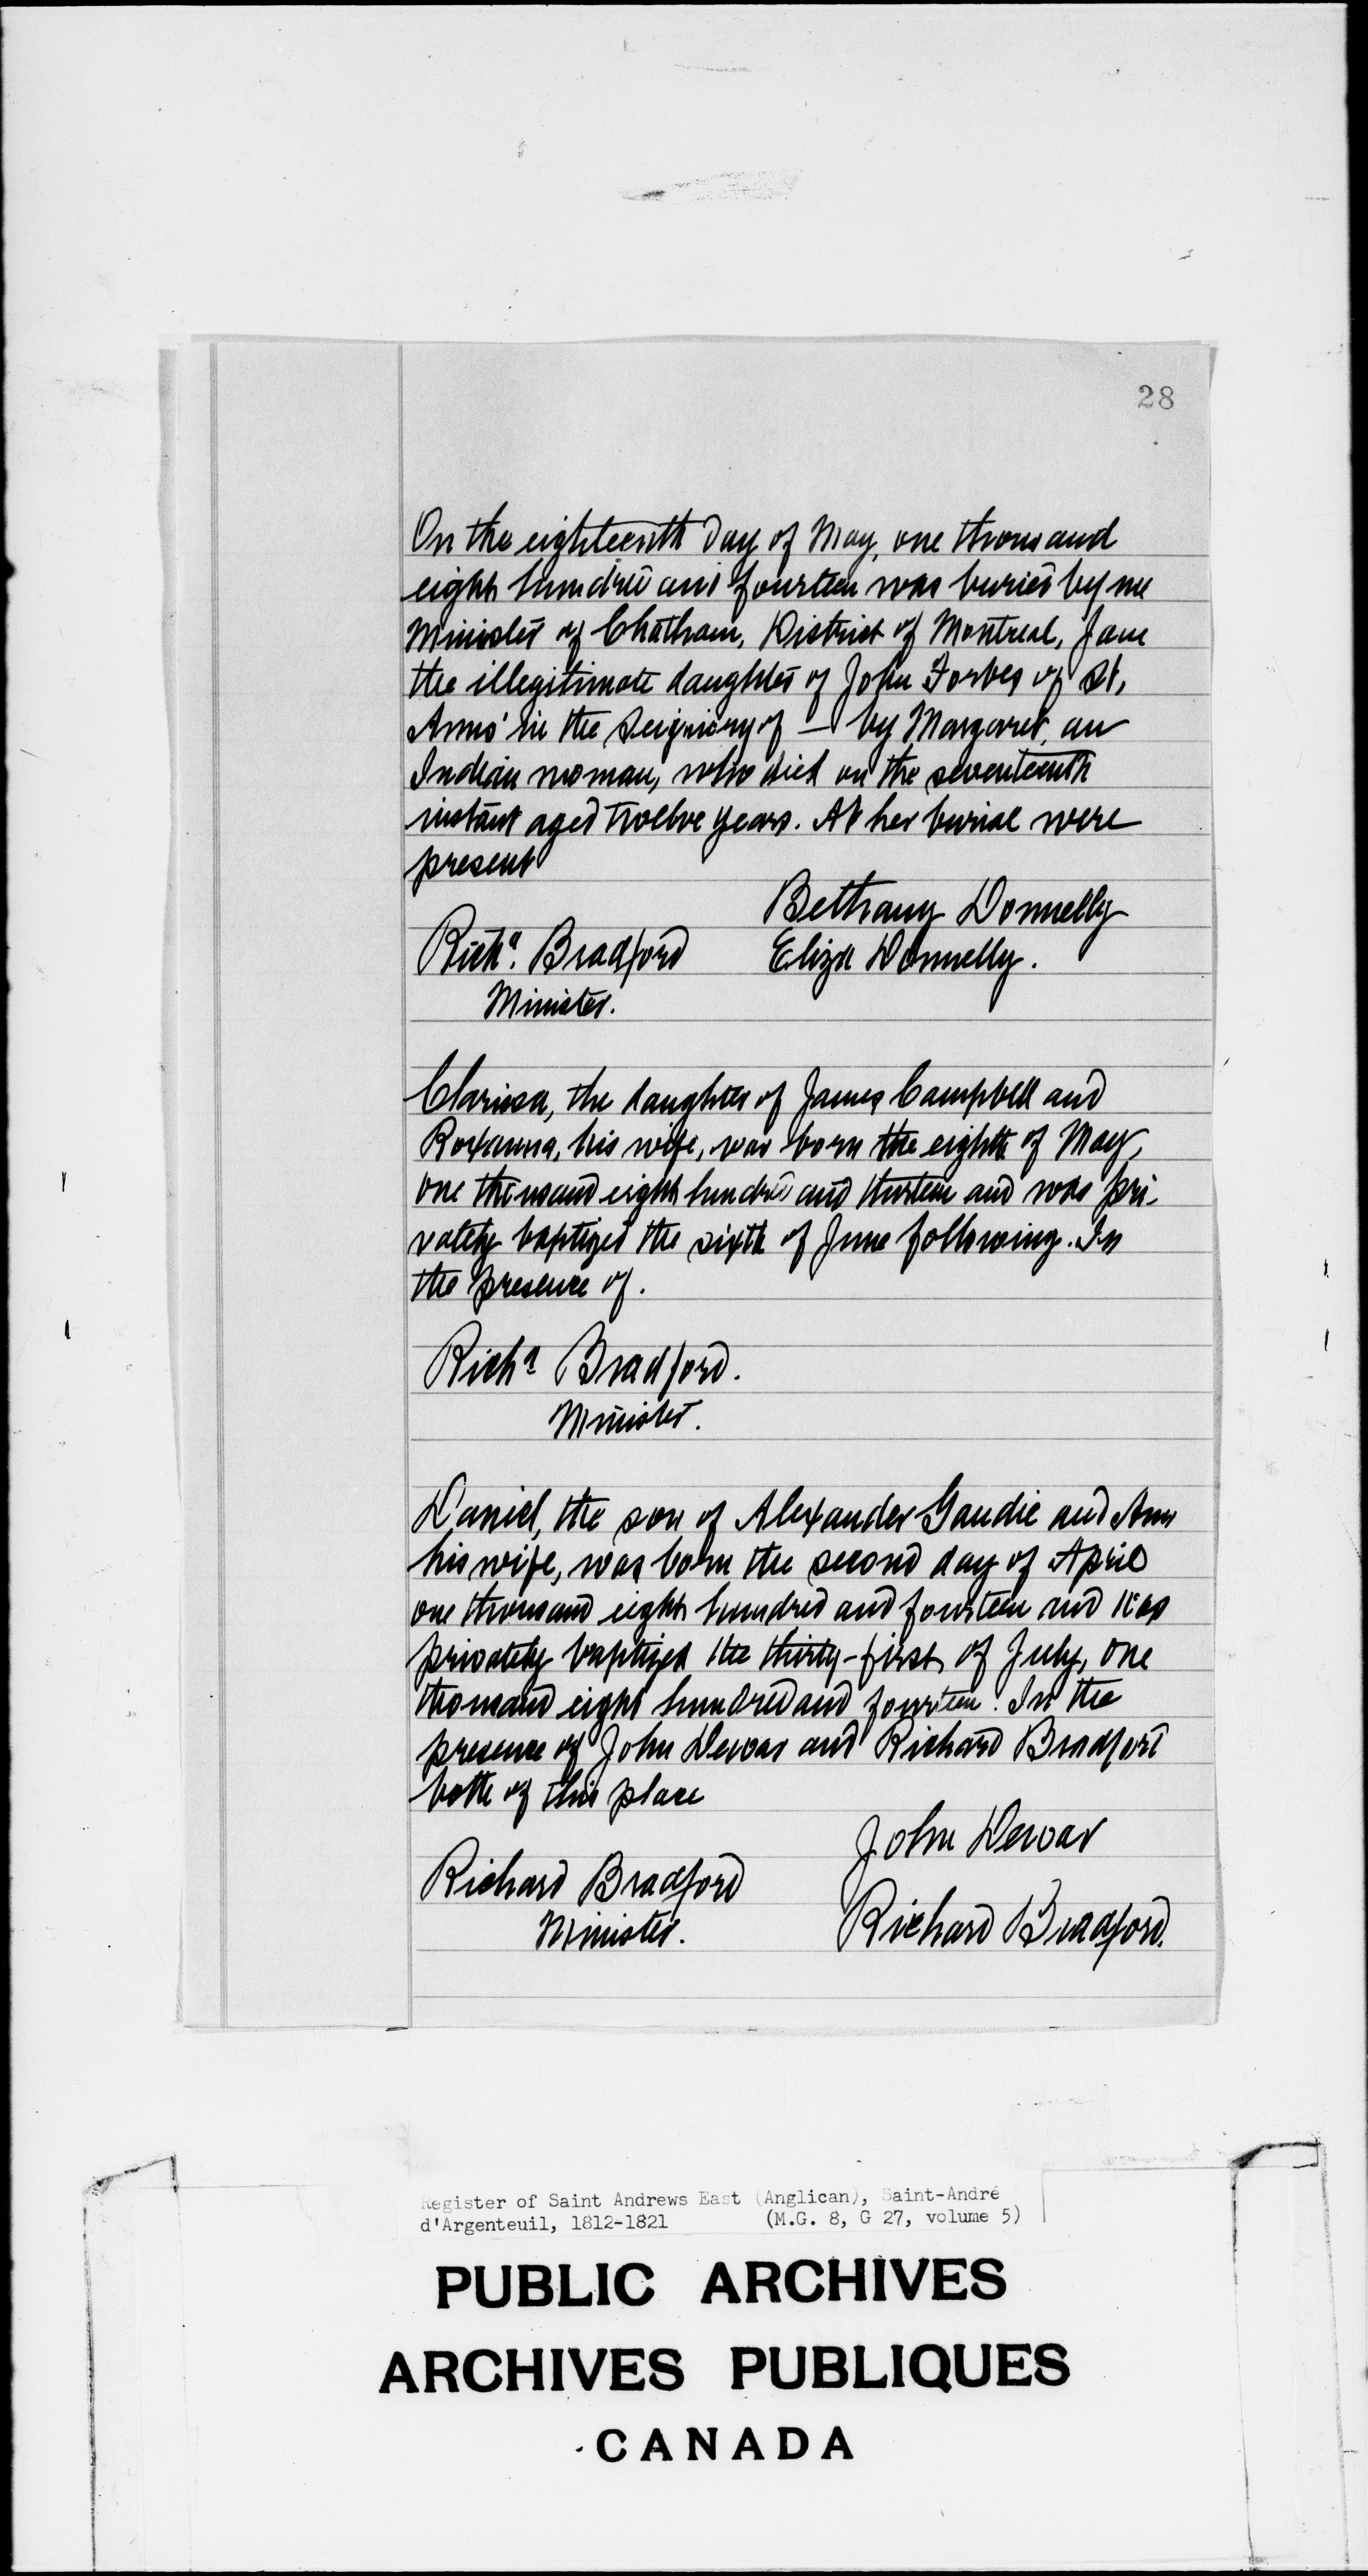 28
On the eighteenth day of May, one thousand
eight hundred and fourteen was buried by me
Minister of Chatham, District of Montreal, Jane
the illegitimate daughter of John Forbes of St,
Anns' in the Seigniory of — by Margaret, an
Indian woman, who died on the seventeenth
instant aged twelve years. At her burial were
present
Bethany Donnelly
Richd. Bradford Eliza Donnelly.
Minister.
Clarissa, the daughter of James Campbell and
Roxanna, his wife, was born the eighth of May,
one thousand eight hundred and thirteen and was pri-
vately baptized the sixth of June following. In
the presence of.
Richd Bradford.
Minister.
Daniel, the son of Alexander Gaudie and Ann
his wife, was born the second day of April
one thousand eight hundred and fourteen and was
privately baptized the thirty-first of July, one
thousand eight hundred and fourteen. In the
presence of John Dewar and Richard Bradford
both of this place
John Dewar
Richard Bradford
Minister. Richard Bradford.
Register of Saint Andrews East (Anglican), Saint-André
d'Argenteuil, 1812-1821 (M.G. 8, G 27, volume 5)
PUBLIC ARCHIVES
ARCHIVES PUBLIQUES
CANADA